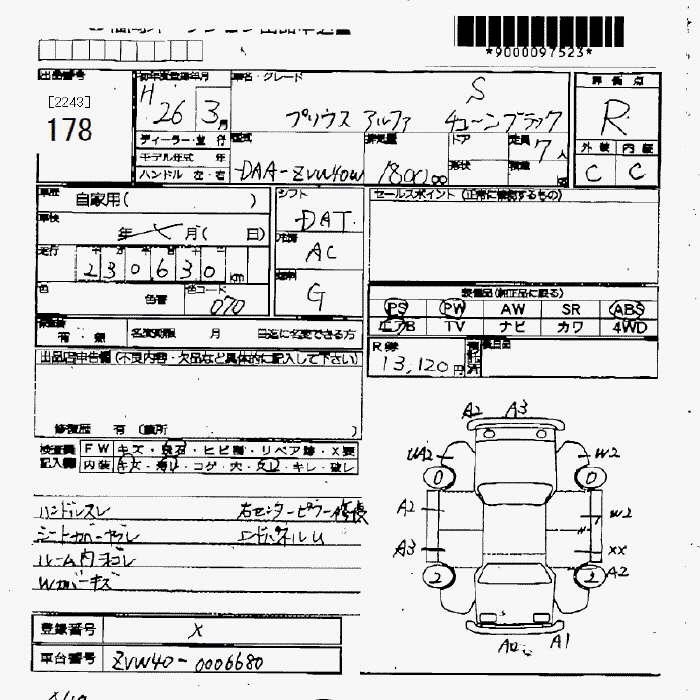 *9000097523*
出品番号 初年度登録年月 車名・グレード 評価点
[2243]
178
H 26 3月
プリウス アルファ S チューンブラック
R
ディーラー・並行 型式 排気量 ドア 定員 7人 外装 内装
モデル年式 年 形状 積量
ハンドル 左・右 DAA-ZVW40W 1800 cc C C
車歴 自家用( ) シフト DAT セールスポイント (正常に機能するもの)
車検 年 月( 日) 冷房 AC
走行 230630 km 燃料 G
色 色替 色コード 070
装備品(純正品に限る)
PS PW AW SR ABS
エアB TV ナビ カワ 4WD
有・無 名変期限 月 日迄に名変できる方
R券 13,120円
出品店申告欄 (不良内容・欠品など具体的に記入して下さい)
修復歴 有 (箇所 )
検査員 FW キズ・飛石・ヒビ
記入欄 内装 キズ・コゲ・穴・キレ・破レ
ハンドルスレ 右センターピラー修復
シートカバーヤブレ エンドパネルU
ルーム内ヨゴレ
Wカバーキズ
A2 A3
UA2 W2
0 0
A2 W2
A3 XX
2 2 A2
A1
登録番号 X
車台番号 ZVW40-0006680